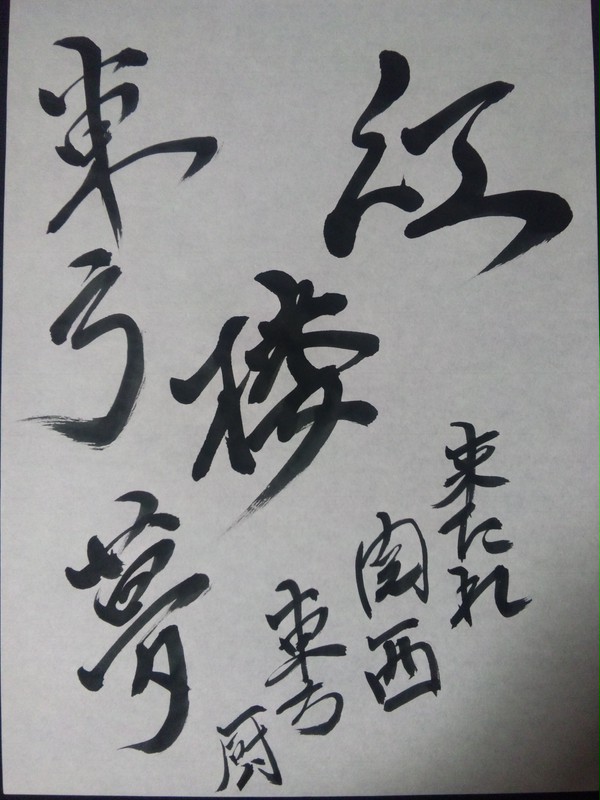 東方
紅
楼
夢
来たれ
関西
東方
厨